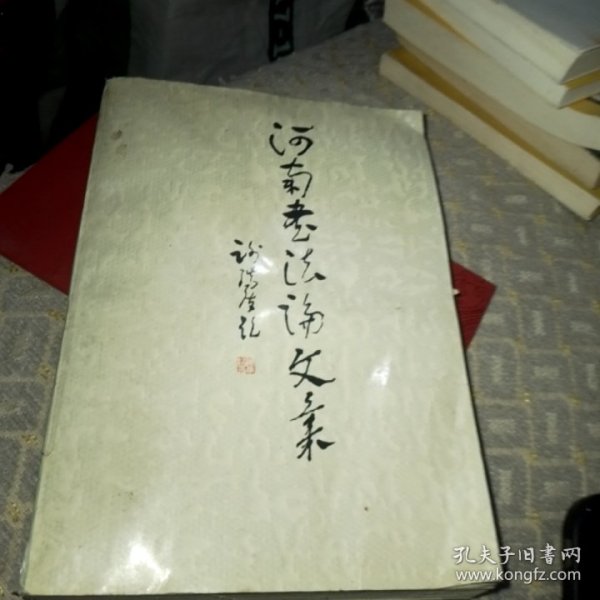 河南书法论文集
谢瑞阶题
孔夫子旧书网
www.kongfz.com